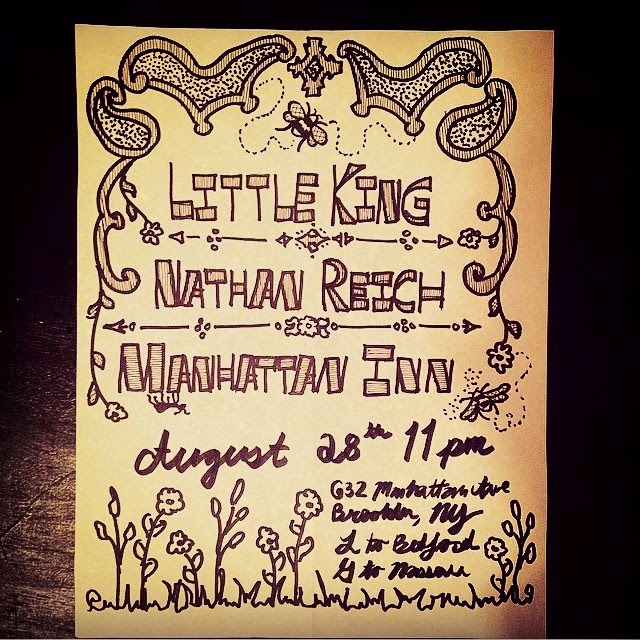 LITTLE KING
NATHAN REICH
MANHATTAN INN
August 28th 11 pm
632 Manhattan Ave
Brookln, NY
L to Bedford
G to Nassau